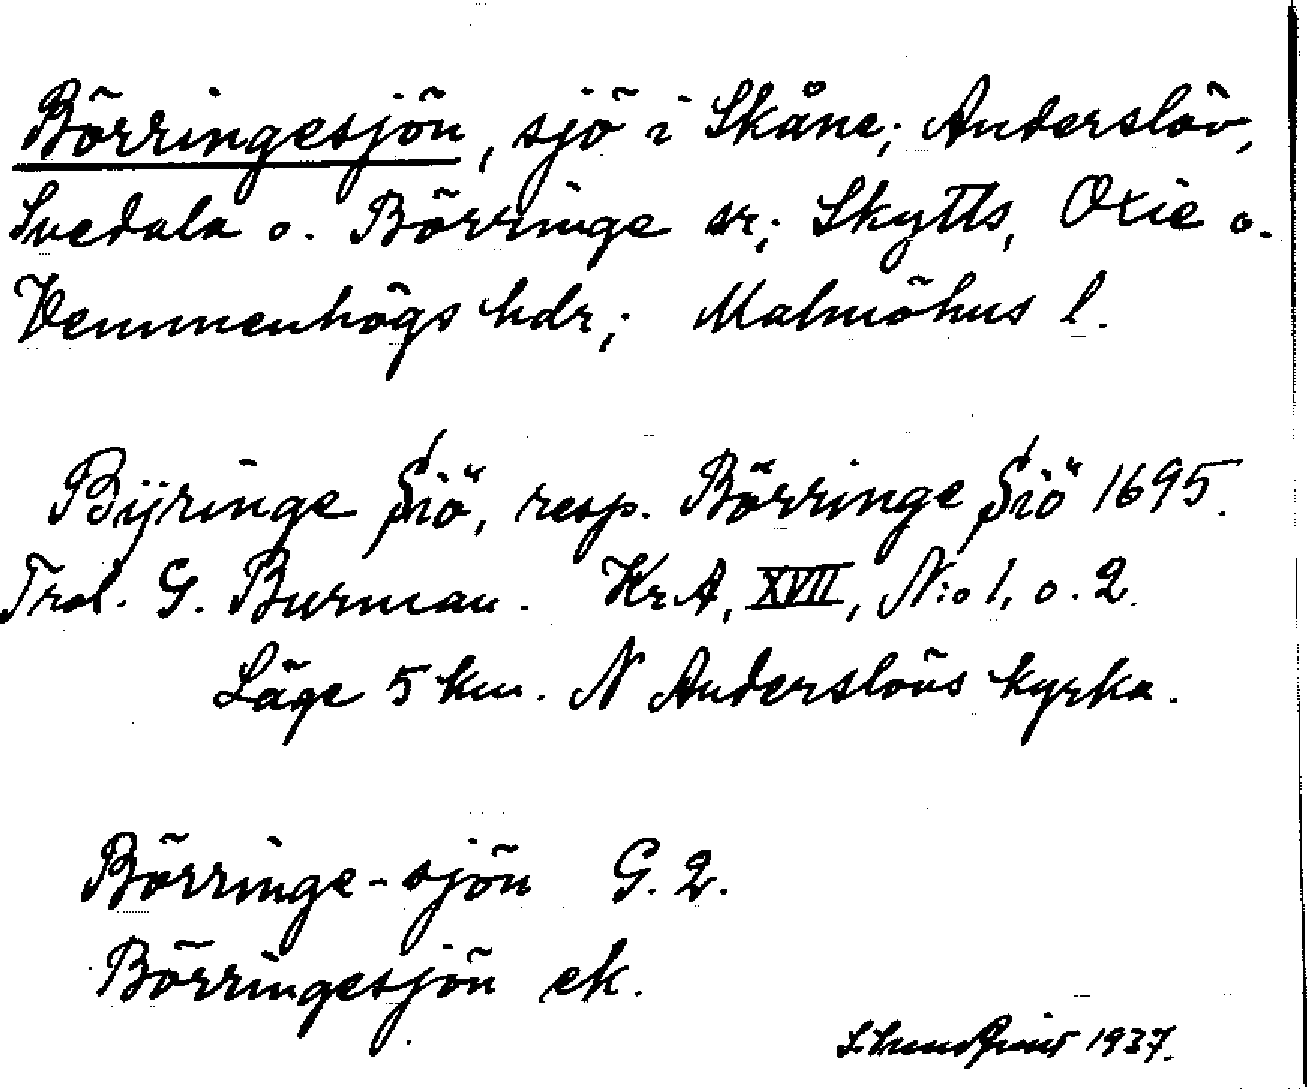 Börringesjön, sjö i Skåne; Anderslöv,
Svedala o. Börringe snr; Skytts, Oxie o.
Vemmenhögs hdr; Malmöhus l.
Bijringe Siö, resp. Börringe Siö 1695.
Trol. G. Burman. KrA, XVII, N:o 1, o. 2.
Läge 5 km. N Anderslövs kyrka.
Börringe-sjön G. 2.
Börringesjön ek.
1937.